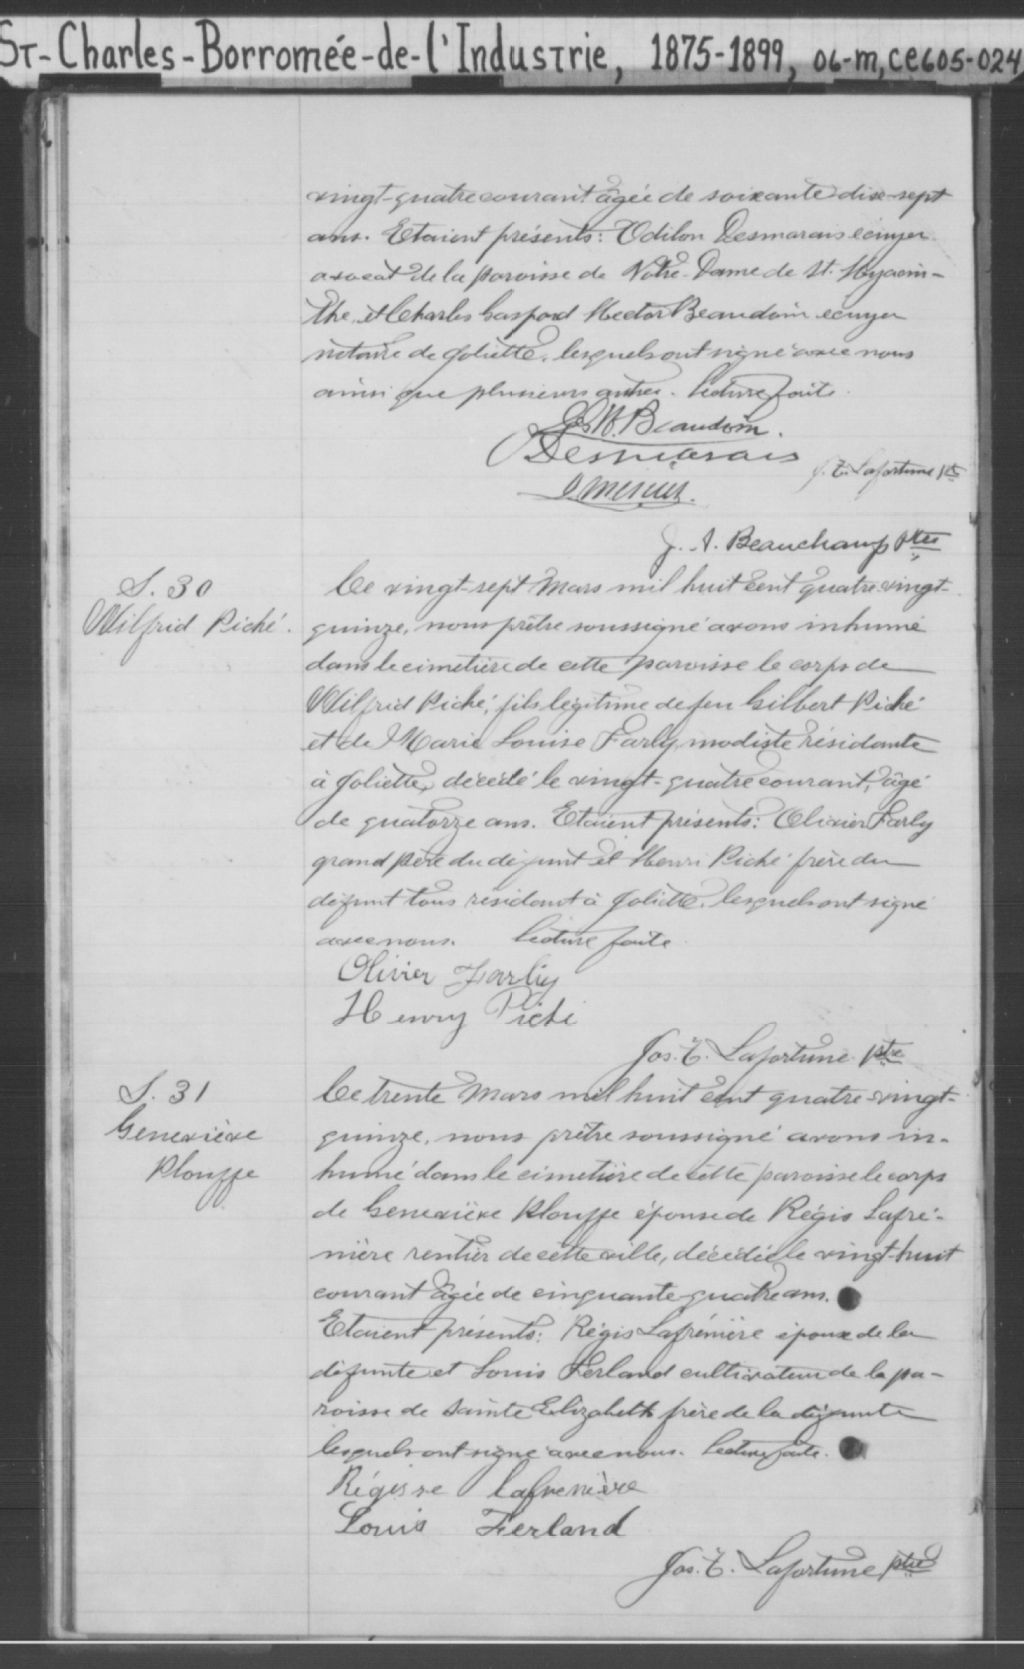 St-Charles-Borromée-de-l'Industrie, 1875-1899, 06-m,ce605-024
vingt-quatre courant âgée de soixante dix-sept
ans. Etaient présents: Odilon Desmarais écuyer
avocat de la paroisse de Notre-Dame de St. Hyacin-
the, et Charles Gaspard Hector Beaudoin écuyer
notaire de Joliette, lesquels ont signé avec nous
ainsi que plusieurs autres. Lecture faite.
H. Beaudoin.
Desmarais
J. E. Lafortune ptre
J. Mercier.
J. A. Beauchamp ptre
S. 30
Wilfrid Piché.
Ce vingt-sept Mars mil huit cent quatre-vingt-
quinze, nous prêtre soussigné avons inhumé
dans le cimetière de cette paroisse le corps de
Wilfrid Piché, fils légitime de feu Gilbert Piché
et de Marie Louise Farly, modiste résidante
à Joliette, décédé le vingt-quatre courant, âgé
de quatorze ans. Etaient présents: Olivier Farly
grand père du défunt et Henri Piché frère du
défunt tous résidant à Joliette, lesquels ont signé
avec nous. Lecture faite.
Olivier Farly
Henry Piché
Jos. E. Lafortune ptre
S. 31
Geneviève
Plouffe
Ce trente Mars mil huit cent quatre-vingt-
quinze, nous prêtre soussigné avons in-
humé dans le cimetière de cette paroisse le corps
de Geneviève Plouffe épouse de Régis Lafré-
nière rentier de cette ville, décédée le vingt-huit
courant âgée de cinquante-quatre ans.
Etaient présents: Régis Lafrénière époux de la
défunte et Louis Ferland cultivateur de la pa-
roisse de Sainte Elizabeth frère de la défunte
lesquels ont signé avec nous. Lecture faite.
Régisse lafrenière
Louis Ferland
Jos. E. Lafortune ptre